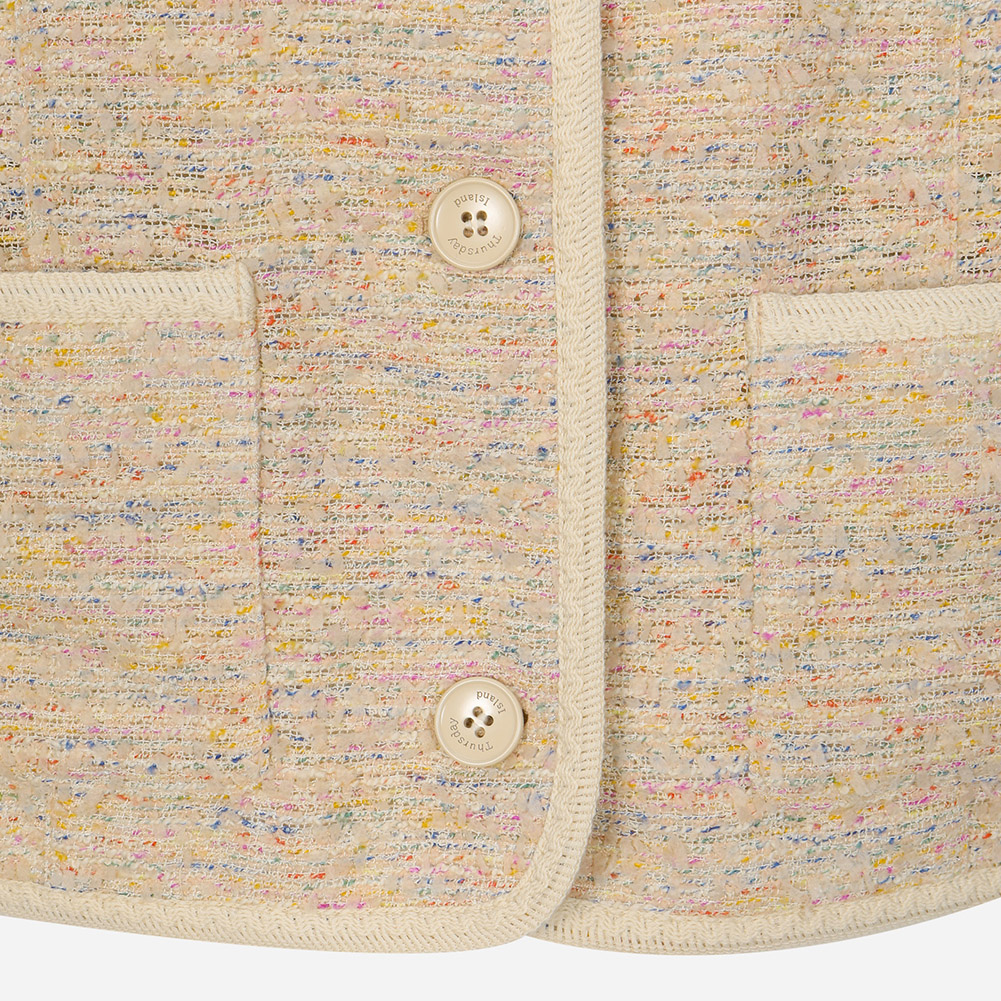 Thursday
Island
Thursday
Island